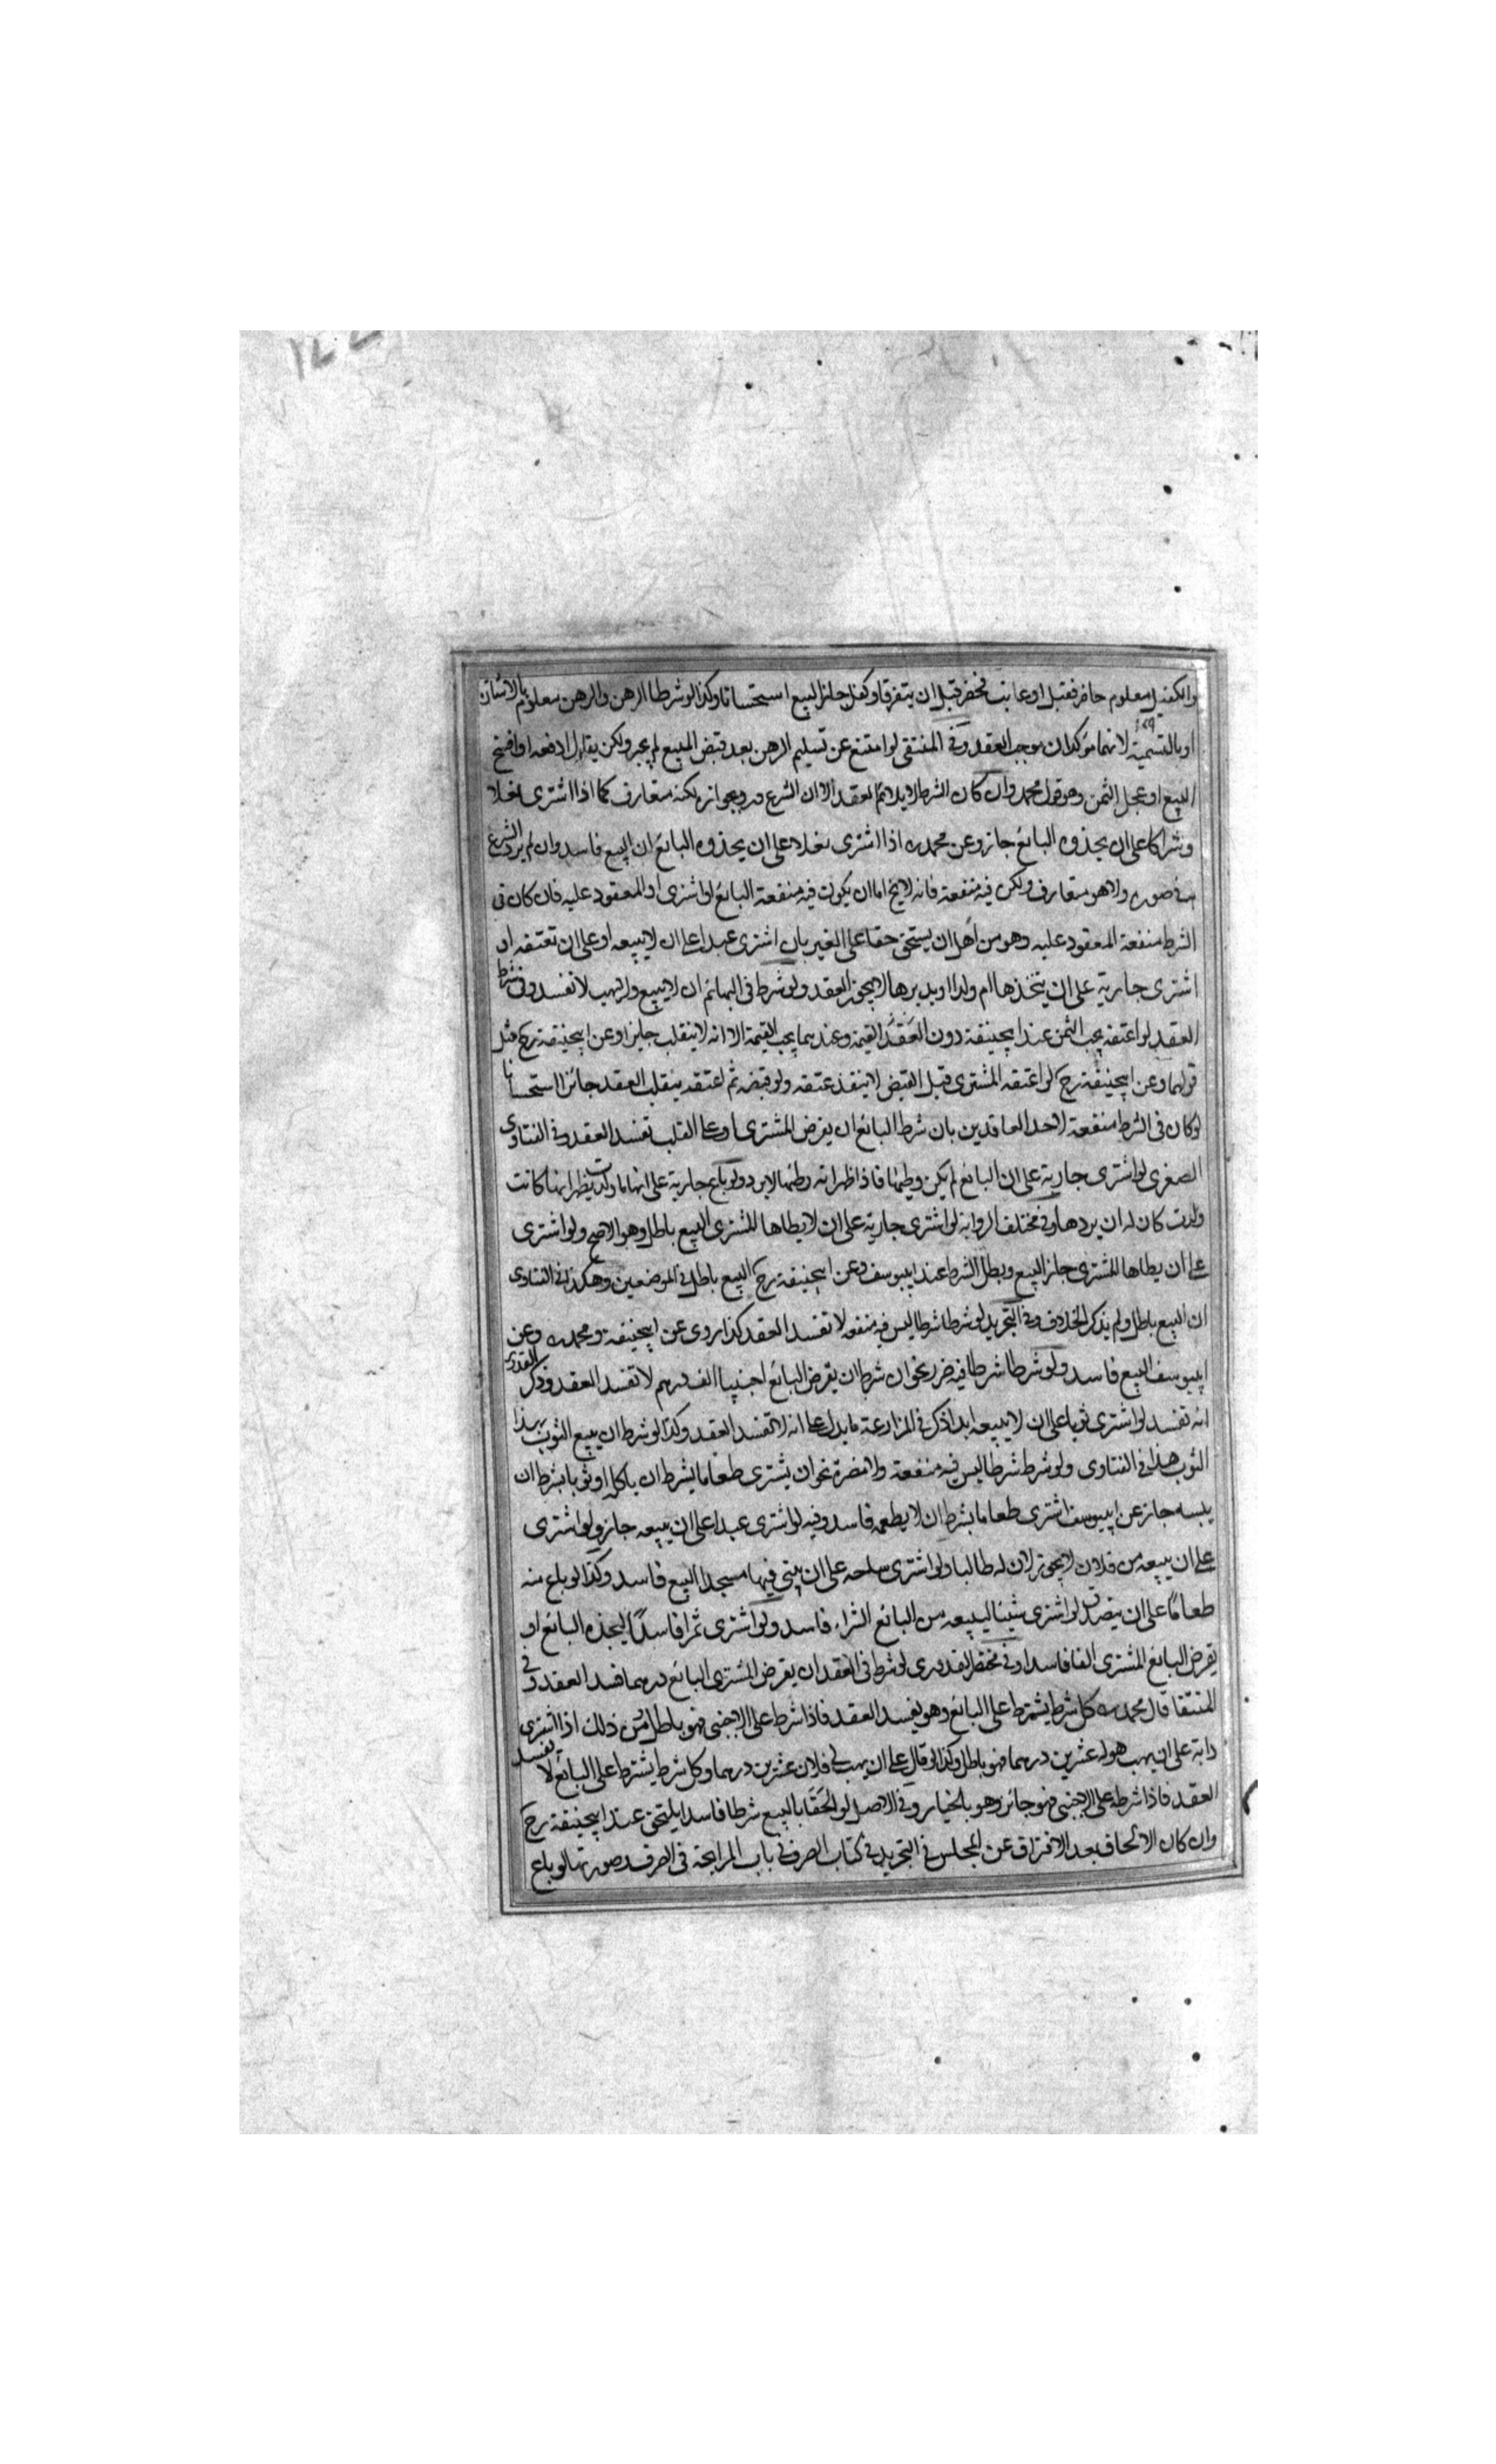 والكفيل معلوم حاضر فقبل او غايب فحضر قبل ان يتفرقا وكفل جاز البيع استحسانا وكذا لو شرطا الرهن والرهن معلوم بالاشارة
او بالتسمية لانهما مؤكدان موجب العقد وفي المنتقى لو امتنع عن تسليم الرهن بعد قبض المبيع لم يجبر ولكن يقال ادفعه او افسخ
البيع او عجل الثمن وهو قول محمد وان كان الشرط لا يلائم العقد الا ان الشرع ورد بجوازه لكنه متعارف كما اذا اشترى نعلا
وشراكا على ان يحذوه البائع جاز وعن محمد اذا اشترى نعلا على ان يحذوه البائع ان البيع فاسد وان لم يرد الشرع
في صوره ولا هو متعارف ولكن فيه منفعة فانه لا يخ اما ان يكون فيه منفعة البائع او المشترى او المعقود عليه فان كان في
الشرط منفعة المعقود عليه وهو من اهل ان يستحق حقا على الغير بان اشترى عبدا على ان لا يبيعه او على ان تعتقه او
اشترى جارية على ان يتخذها ام ولد او يدبرها لا يجوز العقد ولو شرط في البهائم ان لا يبيع ولا يهب لا تفسد وفي شرط
العقد لو اعتقه يجب الثمن عند ابيحنيفة دون العقد القيمة وعندهما يجب القيمة الا انه لا ينقلب جايزا وعن ابيحنيفة رح مثل
قولهما وعن ابيحنيفة رح لو اعتقه المشترى قبل القبض لا ينفذ عتقه ولو قبضه ثم اعتقه ينقلب العقد جائزا استحسانا
لو كان في الشرط منفعة لاحد العاقدين بان شرط البائع ان يقرض المشترى او على القلب تفسد العقد وفي الفتاوى
الصغرى لو اشترى جارية على ان البائع لم يكن وطيها فاذا ظهر انه وطيها لا يرد ولو باع جارية على انها ما ولدت فظهر انها كانت
ولدت كان له ان يردها وفي مختلف الرواية لو اشترى جارية على ان لا يطاها المشترى البيع باطل وهو الاصح ولو اشترى
على ان يطاها المشترى جاز البيع وبطل الشرط عند ابيوسف وعن ابيحنيفة رح البيع باطل في الموضعين وهكذا في الفتاوى
ان البيع باطل ولم يذكر الخلاف وفي التجريد لو شرطا شرطا ليس فيه منفعة لا تفسد العقد كذا روى عن ابيحنيفة ومحمد وعن
ابيوسف البيع فاسد ولو شرطا شرطا فيه ضرر نحو ان شرط ان يقرض البائع اجنبيا الف درهم لا تفسد العقد وذكر القدورى
انه تفسد لو اشترى ثوبا على ان لا يبيعه ابدا ذكر في المزارعة ما يدل على انه لا تفسد العقد وكذا لو شرط ان يبيع الثوب بهذا
الثوب هذا في الفتاوى ولو شرط شرطا ليس فيه منفعة ولا مضرة نحو ان يشترى طعاما بشرط ان ياكله او ثوبا بشرط ان
يلبسه جاز عن ابيوسف اشترى طعاما بشرط ان لا يطعمه فاسد وفيه لو اشترى عبدا على ان يبيعه جاز ولو اشترى
على ان يبيعه من فلان لا يجوز لان له طالبا ولو اشترى ساحه على ان يبنى فيها مسجدا البيع فاسد وكذا لو باع منه
طعاما على ان يتصدق لو اشترى شيئا ليبيعه من البائع الشراء فاسد ولو اشترى ثمرا فاسدا ليجذه البائع او
يقرض البائع المشترى الفا فاسدا وفي مختصر القدورى لو شرط في العقد ان يقرض المشترى البائع درهما فسد العقد وفي
المنتقا قال محمد كل شرط يشترط على البائع وهو يفسد العقد فاذا شرط على الاجنبى فهو باطل من ذلك اذا اشترى
دابة على ان يهب هو له عشرين درهما فهو باطل وكذا لو قال على ان يهب لى فلان عشرين درهما وكل شرط يشترط على البائع لا تفسد
العقد فاذا شرط على الاجنبى فهو جائز وهو بالخيار وفي الاصل لو الحقا بالبيع شرطا فاسدا يلتحق عند ابيحنيفة رح
وان كان الالحاق بعد الافتراق عن المجلس في التجريد في كتاب الصرف في باب المرابحة في الصرف صورتها لو باع